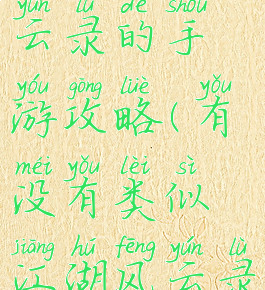 yún lù de shǒu
云录的手
yóu gōng lüè yǒu
游攻略(有
méi yǒu lèi sì
没有类似
jiāng hú fēng yún lù
江湖风云录